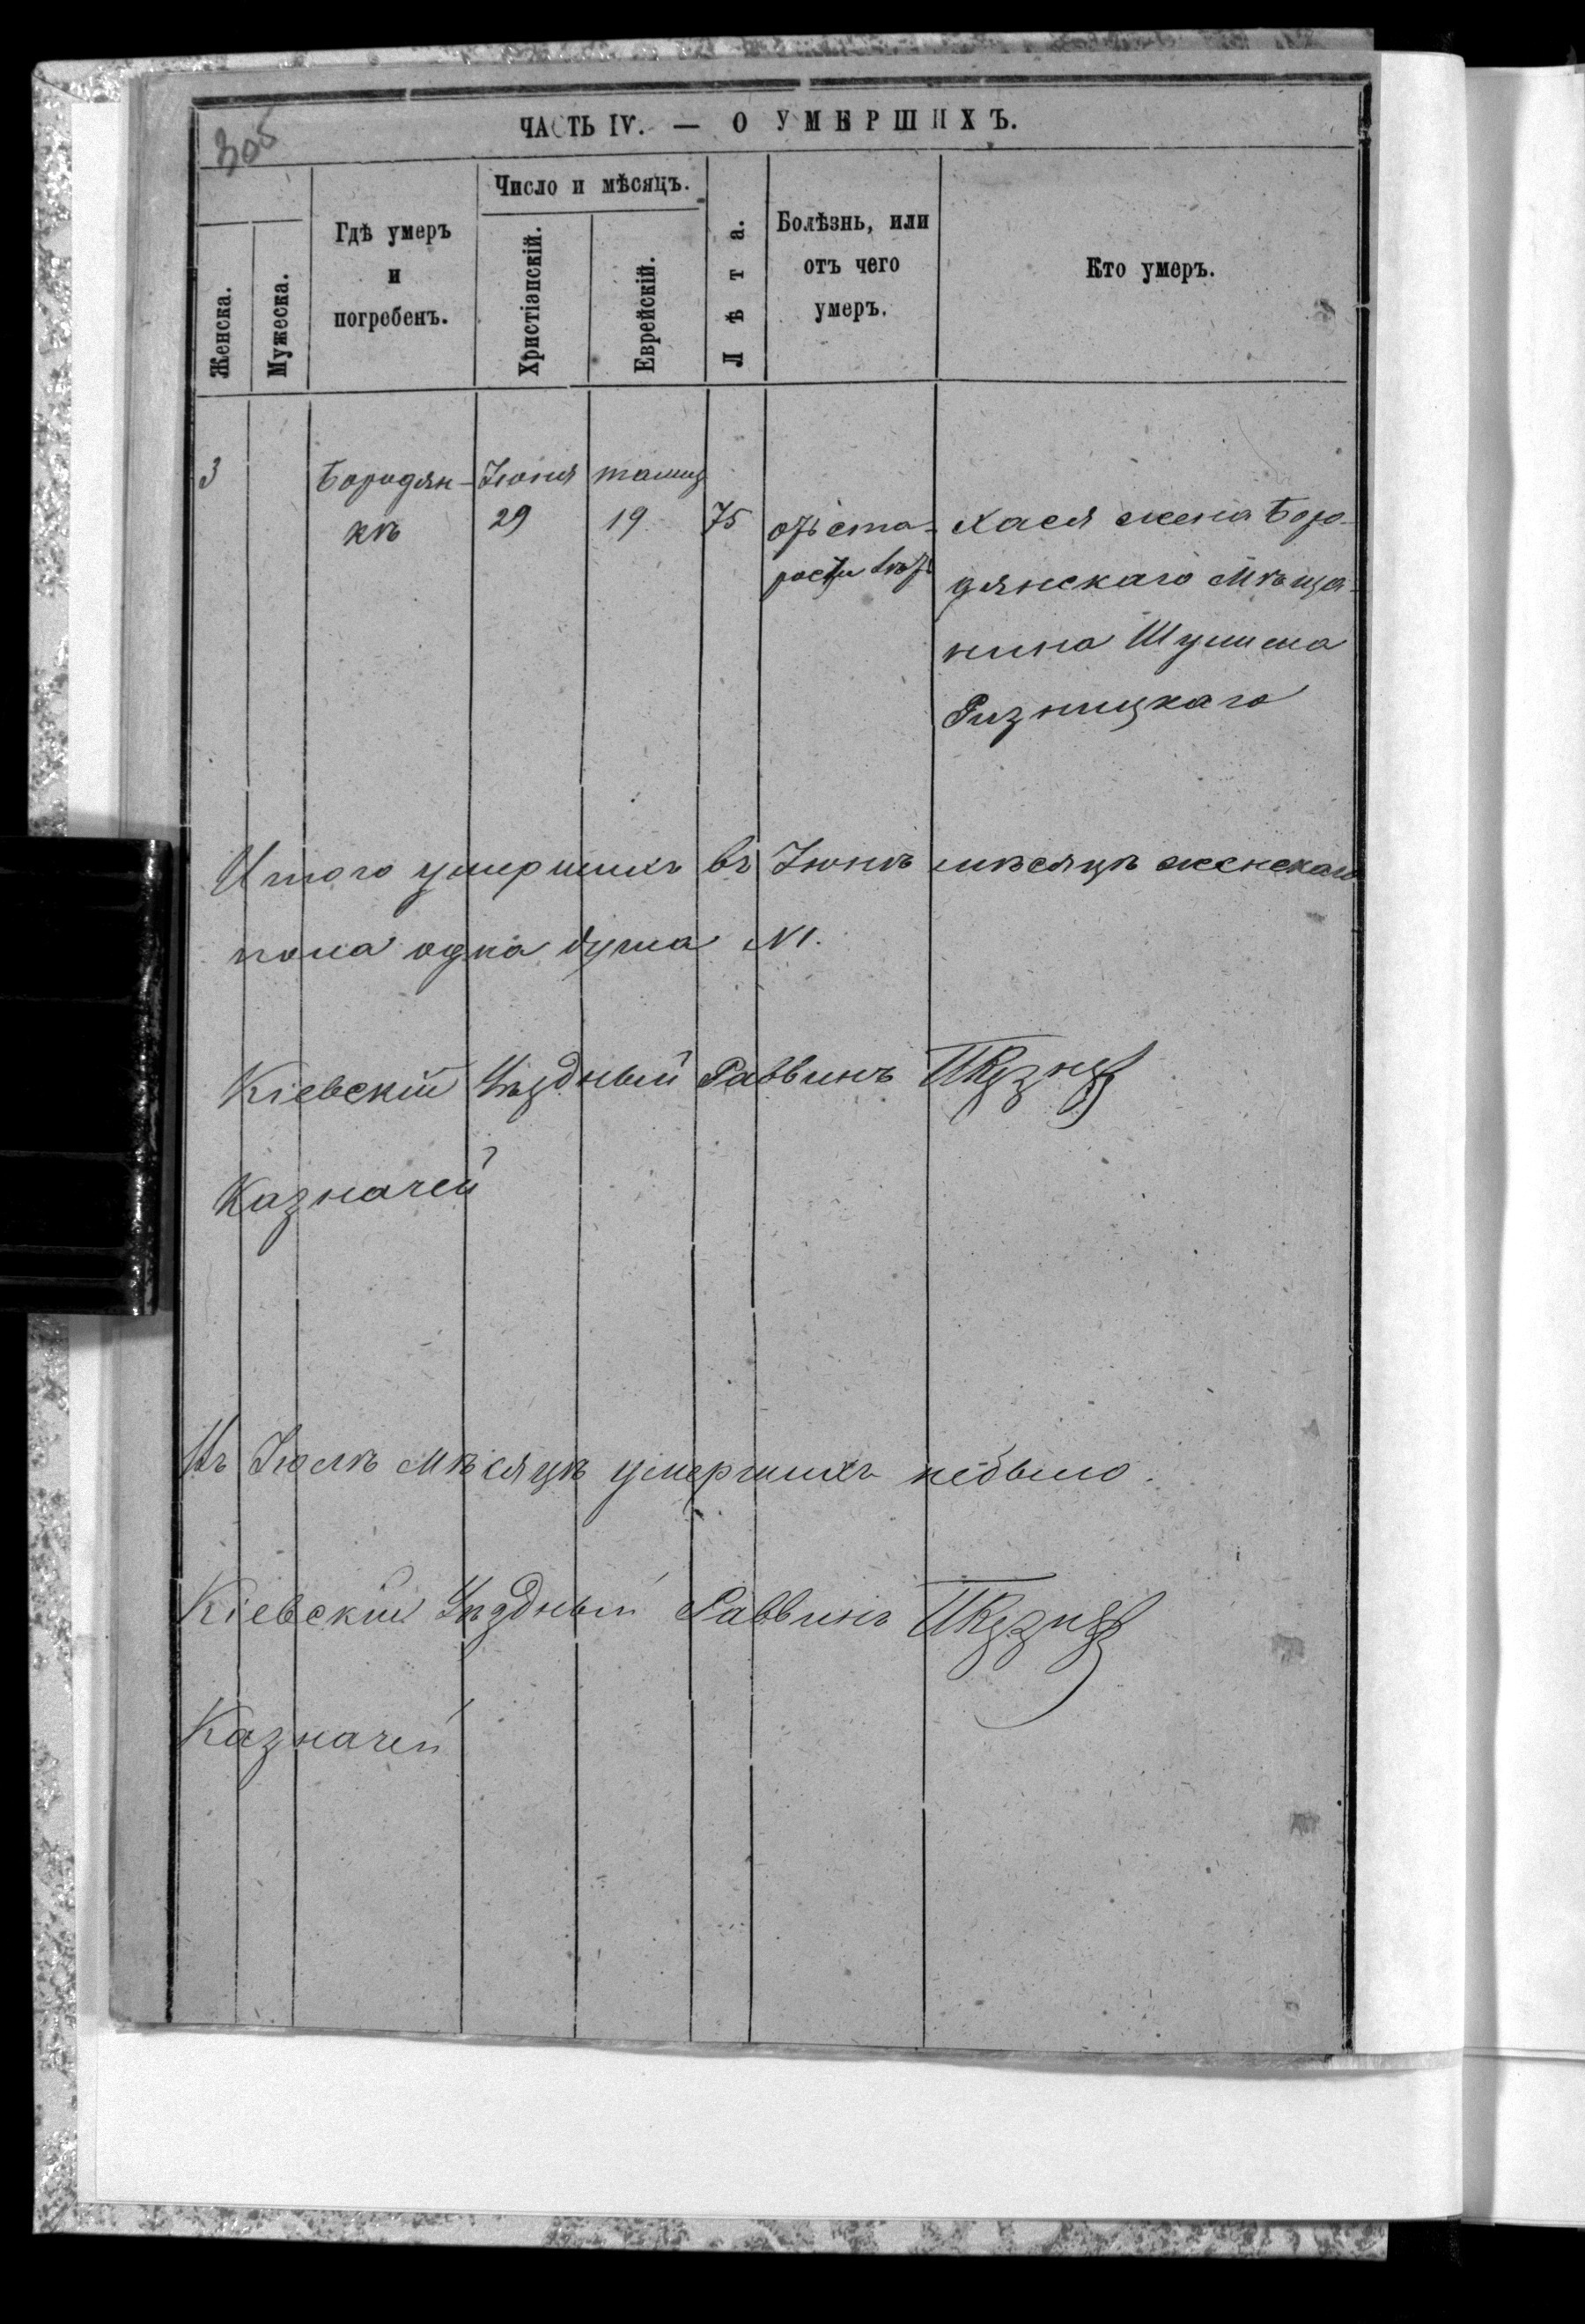 305
ЧАСТЬ IV. — О УМЕРШИХЪ.
Женска.
Мужеска.
Гдѣ умеръ
и
погребенъ.
Число и мѣсяцъ.
Христіанскій.
Еврейскій.
Лѣта.
Болѣзнь, или
отъ чего
умеръ.
Кто умеръ.
3
Бородян-
кѣ
Іюня
29
тамиз
19
75
отъ ста-
рости лѣтъ
Хася жена Боро-
дянскаго Мѣща-
нина Шулима
Ризницкаго
Итого умершихъ въ Іюнѣ мѣсяцѣ женскаго
пола одна душа №1.
Кіевскій Уѣздный Раввинъ
Казначей
Въ Іюлѣ мѣсяцѣ умершихъ небыло.
Кіевскій Уѣздный Раввинъ
Казначей